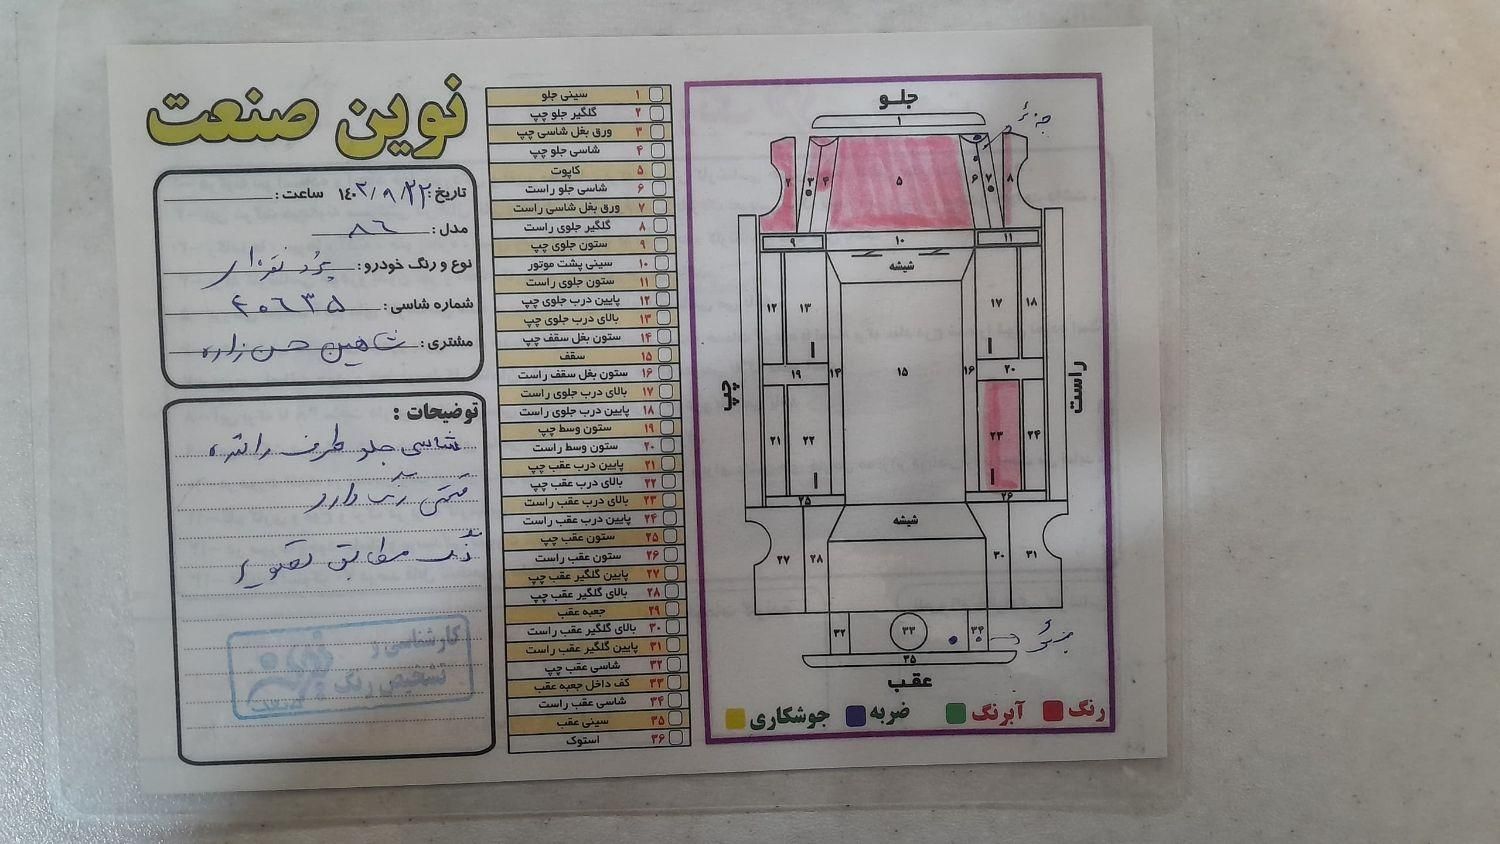 نوین صنعت
تاریخ: ۱۴۰۲/۹/۲۲ ساعت:
مدل: ۸۶
نوع و رنگ خودرو: پراید نقره‌ای
شماره شاسی: ۴۰۶۳۵
مشتری: شاهین حسن زاده
توضیحات:
شاسی جلو طرف راننده
قسمتی رنگ دارد
رنگ مطابق تصویر
کارشناسی و
تشخیص رنگ
صنعت
۱ سینی جلو
۲ گلگیر جلو چپ
۳ ورق بغل شاسی چپ
۴ شاسی جلو چپ
۵ کاپوت
۶ شاسی جلو راست
۷ ورق بغل شاسی راست
۸ گلگیر جلوی راست
۹ ستون جلوی چپ
۱۰ سینی پشت موتور
۱۱ ستون جلوی راست
۱۲ پایین درب جلوی چپ
۱۳ بالای درب جلوی چپ
۱۴ ستون بغل سقف چپ
۱۵ سقف
۱۶ ستون بغل سقف راست
۱۷ بالای درب جلوی راست
۱۸ پایین درب جلوی راست
۱۹ ستون وسط چپ
۲۰ ستون وسط راست
۲۱ پایین درب عقب چپ
۲۲ بالای درب عقب چپ
۲۳ بالای درب عقب راست
۲۴ پایین درب عقب راست
۲۵ ستون عقب چپ
۲۶ ستون عقب راست
۲۷ پایین گلگیر عقب چپ
۲۸ بالای گلگیر عقب چپ
۲۹ جعبه عقب
۳۰ بالای گلگیر عقب راست
۳۱ پایین گلگیر عقب راست
۳۲ شاسی عقب چپ
۳۳ کف داخل جعبه عقب
۳۴ شاسی عقب راست
۳۵ سینی عقب
۳۶ استوک
جلو
۱
جزئی
۲ ۳ ۴ ۵ ۶ ۷ ۸
۹ ۱۰ ۱۱
شیشه
۱۲ ۱۳ ۱۷ ۱۸
چپ ۱۹ ۱۴ ۱۵ ۱۶ ۲۰ راست
۲۱ ۲۲ ۲۳ ۲۴
۲۵ ۲۶
شیشه
۲۷ ۲۸ ۳۰ ۳۱
۳۲ ۳۳ ۳۴ جزئی
۳۵
عقب
رنگ آبرنگ ضربه جوشکاری